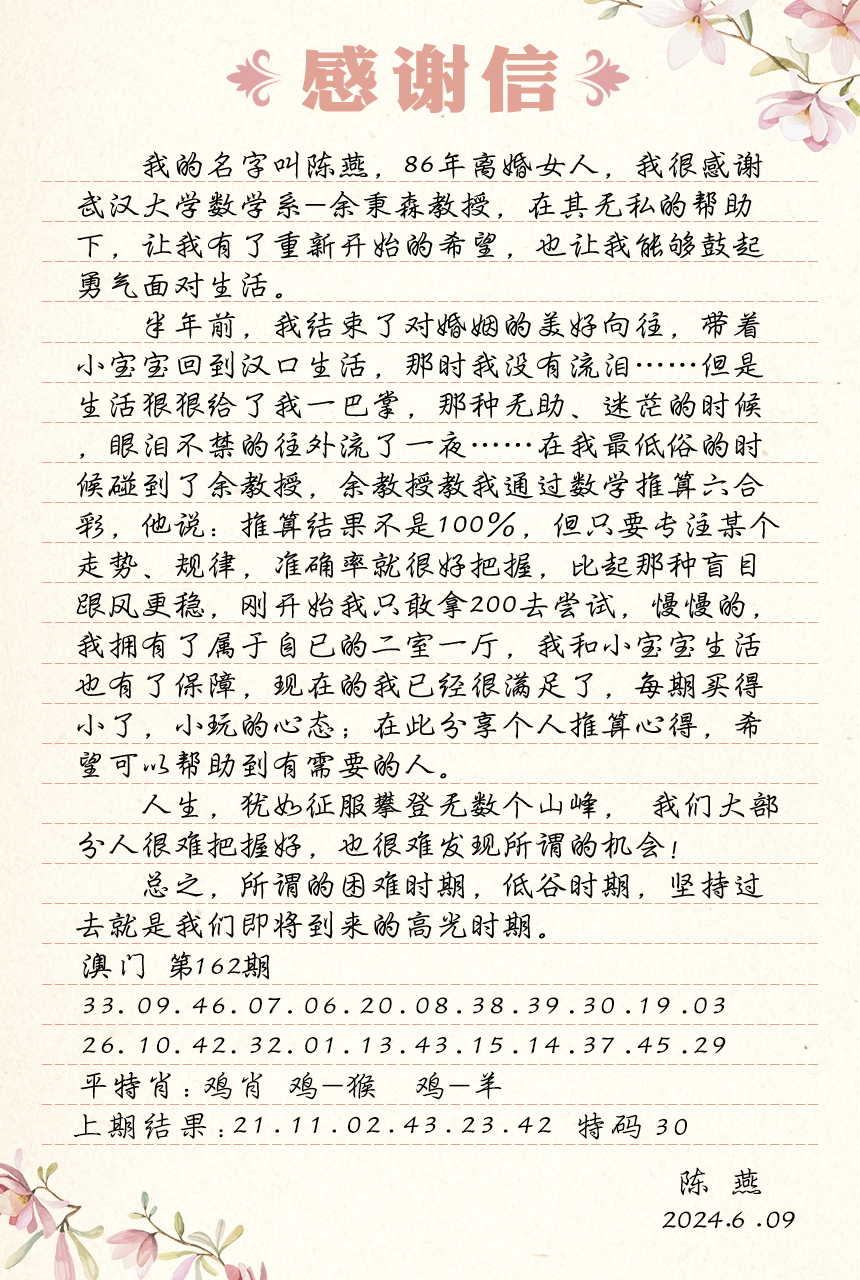 感谢信
我的名字叫陈燕，86年离婚女人，我很感谢
武汉大学数学系—余秉森教授，在其无私的帮助
下，让我有了重新开始的希望，也让我能够鼓起
勇气面对生活。
半年前，我结束了对婚姻的美好向往，带着
小宝宝回到汉口生活，那时我没有流泪……但是
生活狠狠给了我一巴掌，那种无助、迷茫的时候
，眼泪不禁的往外流了一夜……在我最低俗的时
候碰到了余教授，余教授教我通过数学推算六合
彩，他说：推算结果不是100%，但只要专注某个
走势、规律，准确率就很好把握，比起那种盲目
跟风更稳，刚开始我只敢拿200去尝试，慢慢的，
我拥有了属于自已的二室一厅，我和小宝宝生活
也有了保障，现在的我已经很满足了，每期买得
小了，小玩的心态；在此分享个人推算心得，希
望可以帮助到有需要的人。
人生，犹如征服攀登无数个山峰， 我们大部
分人很难把握好，也很难发现所谓的机会！
总之，所谓的困难时期，低谷时期，坚持过
去就是我们即将到来的高光时期。
澳门 第162期
33.09.46.07.06.20.08.38.39.30.19.03
26.10.42.32.01.13.43.15.14.37.45.29
平特肖：鸡肖 鸡—猴 鸡—羊
上期结果：21.11.02.43.23.42 特码 30
陈 燕
2024.6.09